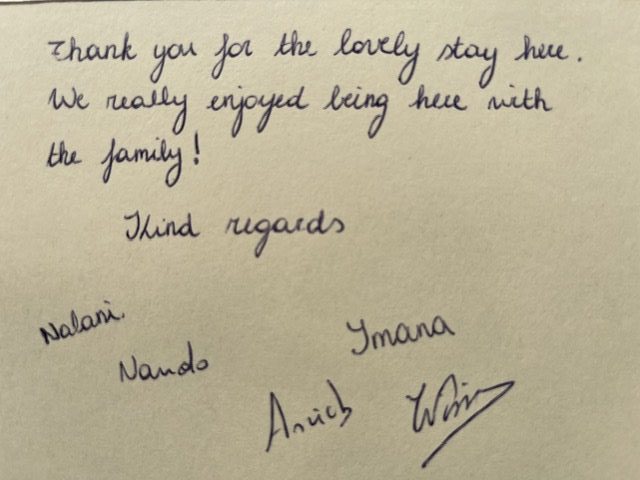 Thank you for the lovely stay here.
We really enjoyed being here with
the family!
Kind regards
Nalani.
Nando
Ymana